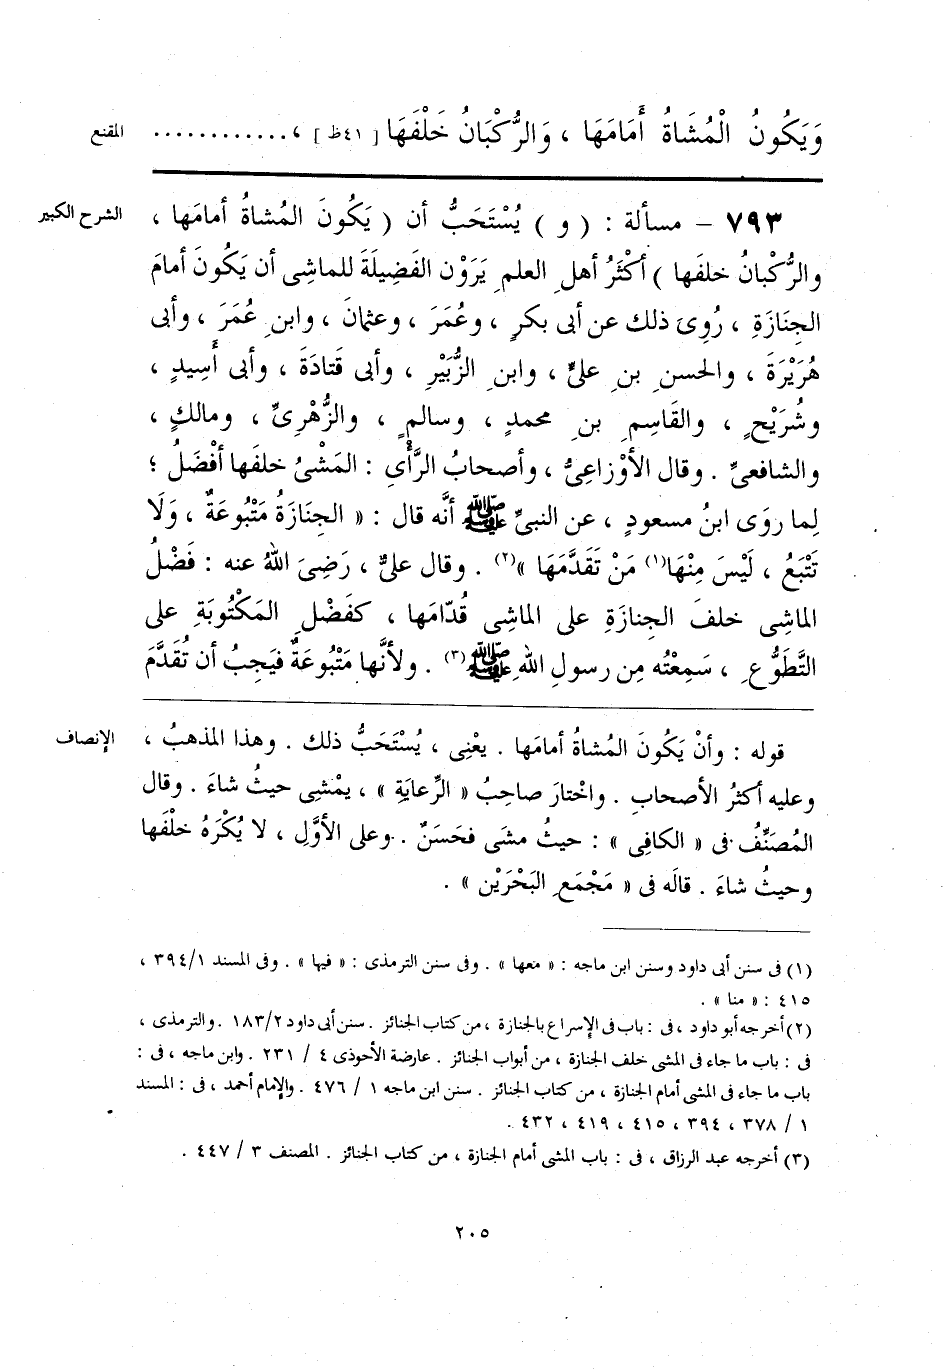 المقنع
وَيَكُونُ الْمُشَاةُ أَمَامَهَا ، وَالرُّكْبَانُ خَلْفَهَا [ ٤١ظ ] ، ............
الشرح الكبير
٧٩٣ – مسألة : ( و ) يُسْتَحَبُّ أن ( يَكُونَ المُشاةُ أمامَها ،
والرُّكْبانُ خلفَها ) أكثَرُ أهلِ العلمِ يَرَوْن الفَضِيلَةَ للماشِى أن يَكُونَ أمامَ
الجِنازَةِ ، رُوِىَ ذلك عن أبى بكرٍ ، وعُمَرَ ، وعثمانَ ، وابنِ عُمَرَ ، وأبى
هُرَيْرَةَ ، والحسنِ بنِ علىٍّ ، وابنِ الزُّبَيْرِ ، وأبى قَتادَةَ ، وأبى أُسِيدٍ ،
وشُرَيْحٍ ، والقَاسِمِ بنِ محمدٍ ، وسالمٍ ، والزُّهْرِىِّ ، ومالكٍ ،
والشافعىِّ . وقال الأوْزاعِىُّ ، وأصحابُ الرَّأْىِ : المَشْىُ خلفَها أفْضَلُ ؛
لِما روَى ابنُ مسعودٍ ، عن النبىِّ ﷺ أنَّه قال : « الجِنَازَةُ مَتْبُوعَةٌ ، وَلَا
تَتْبَعُ ، لَيْسَ مِنْهَا(١) مَنْ تَقَدَّمَهَا »(٢) . وقال علىٌّ ، رَضِىَ اللهُ عنه : فَضْلُ
الماشِى خلفَ الجِنازَةِ على الماشِى قُدّامَها ، كفَضْلِ المَكْتُوبَةِ على
التَّطَوُّعِ ، سَمِعْتُه مِن رسولِ اللهِ ﷺ(٣) . ولأنَّها مَتْبُوعَةٌ فيَجِبُ أن تُقَدَّمَ
الإنصاف
قوله : وأنْ يَكُونَ المُشاةُ أمامَها . يعْنِى ، يُسْتَحَبُّ ذلك . وهذا المذهبُ ،
وعليه أكثرُ الأصحابِ . واخْتارَ صاحِبُ « الرِّعايَةِ » ، يمْشِى حيثُ شاءَ . وقال
المُصَنِّفُ فى « الكافِى » : حيثُ مشَى فحَسَنٌ . وعلى الأوَّلِ ، لا يُكْرَهُ خلْفَها
وحيثُ شاءَ . قالَه فى « مَجْمَعِ البَحْرَيْن » .
(١) فى سنن أبى داود وسنن ابن ماجه : « معها » . وفى سنن الترمذى : « فيها » . وفى المسند ٣٩٤/١ ،
٤١٥ : « منا » .
(٢) أخرجه أبو داود ، فى : باب فى الإسراع بالجنازة ، من كتاب الجنائز . سنن أبى داود ١٨٣/٢ . والترمذى ،
فى : باب ما جاء فى المشى خلف الجنازة ، من أبواب الجنائز . عارضة الأحوذى ٤ / ٢٣١ . وابن ماجه ، فى :
باب ما جاء فى المشى أمام الجنازة ، من كتاب الجنائز . سنن ابن ماجه ١ / ٤٧٦ . والإمام أحمد ، فى : المسند
١ / ٣٧٨ ، ٣٩٤ ، ٤١٥ ، ٤١٩ ، ٤٣٢ .
(٣) أخرجه عبد الرزاق ، فى : باب المشى أمام الجنازة ، من كتاب الجنائز . المصنف ٣ / ٤٤٧ .
٢٠٥